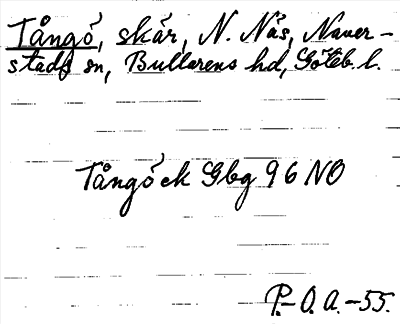 Tångö, skär, N. Näs, Naver-
stads sn, Bullarens hd, Göteb. l.
Tångö ek Gbg 96 NO
P.-O. A. -55.